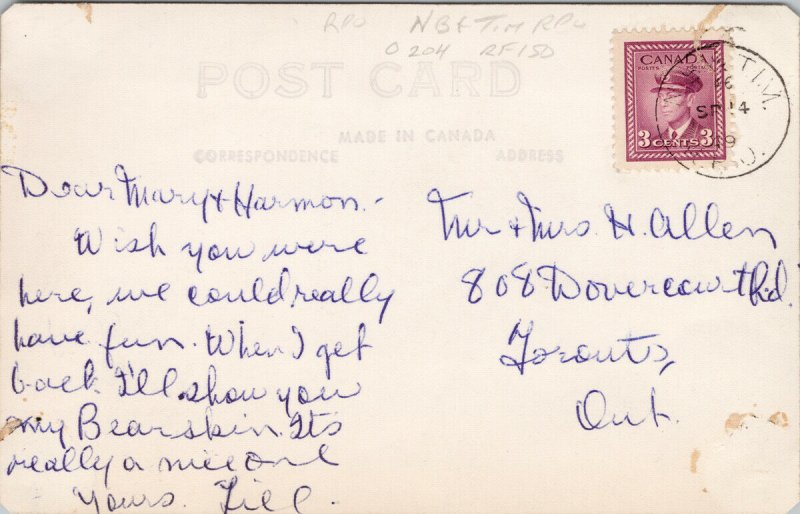 RPO NB & TIM RPO
O 204 RF150
POST CARD
MADE IN CANADA
CORRESPONDENCE ADDRESS
CANADA
POSTES POSTAGE
3 CENTS 3
TIM.
SP 14
R.P.O.
Dear Mary & Harmon -
Wish you were
here, we could really
have fun. When I get
back I'll show you
my Bearskin. Its
really a nice one
Yours.
Mr & Mrs. H. Allen
808 Dovercourt Rd.
Toronto,
Ont.